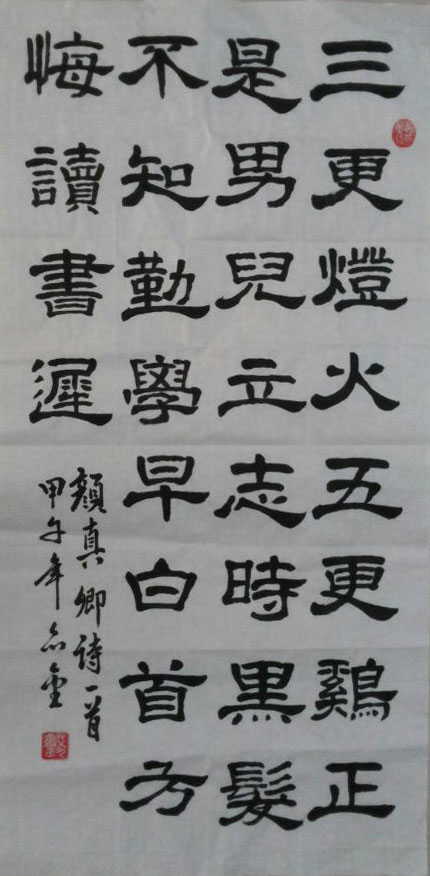 三更燈火五更鷄正
是男兒立志時黑髮
不知勤學早白首方
悔讀書遲
顏真卿詩一首
甲午年